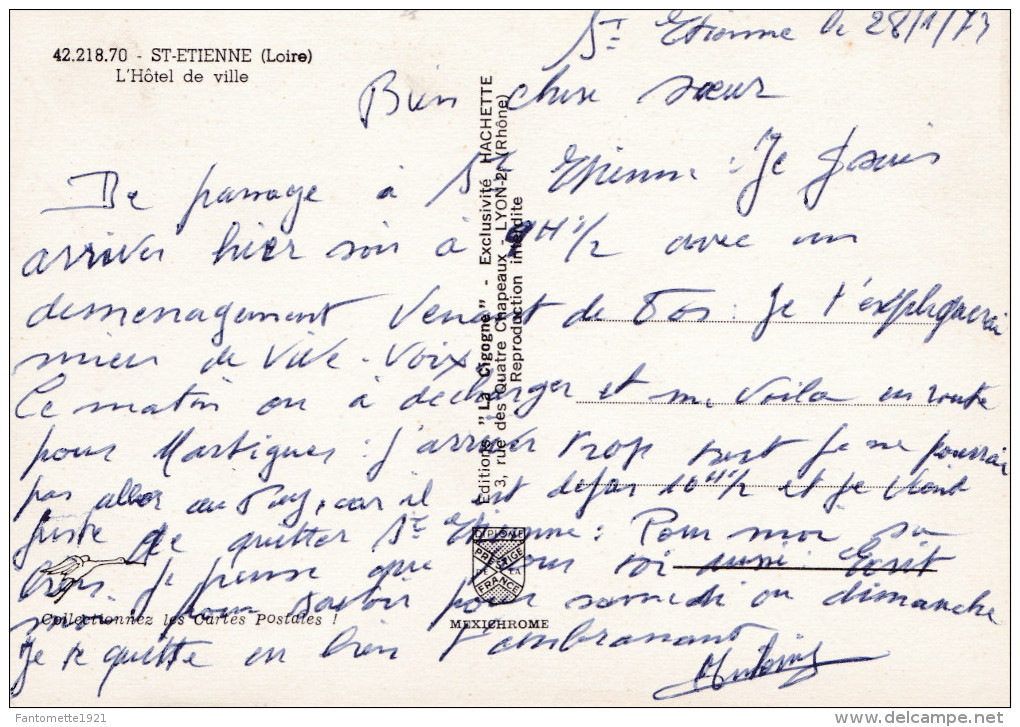 42.218.70 - ST-ETIENNE (Loire)
L'Hôtel de ville
St Etienne le 28/1/73
Bien chere sœur
De passage à St Etienne : Je suis
arriver hier soir à 9H 1/2 avec un
demenagement Venant de Fos : Je t'expliquerai
mieu de vive-Voix.
Ce matin on à decharger et me voila en route
pour Martigues : J'arriver trop tard Je ne pourrai
pas aller au Puy, car il est dejas 10H 1/2 et Je vient
juste de quitter St Etienne : Pour moi sa
vas. Je pense que pour toi aussi. Ecrit
moi pour savoir pour samedi ou dimanche
Je te quitte en bien t'embrassant
Editions "La Cigogne" - Exclusivité HACHETTE
3, rue des Quatre Chapeaux - LYON-2e (Rhône)
Reproduction interdite
DIPLOME
PRESTIGE
DE LA
FRANCE
MEXICHROME
Collectionnez les Cartes Postales !
Fantomette1921
delcampe.net